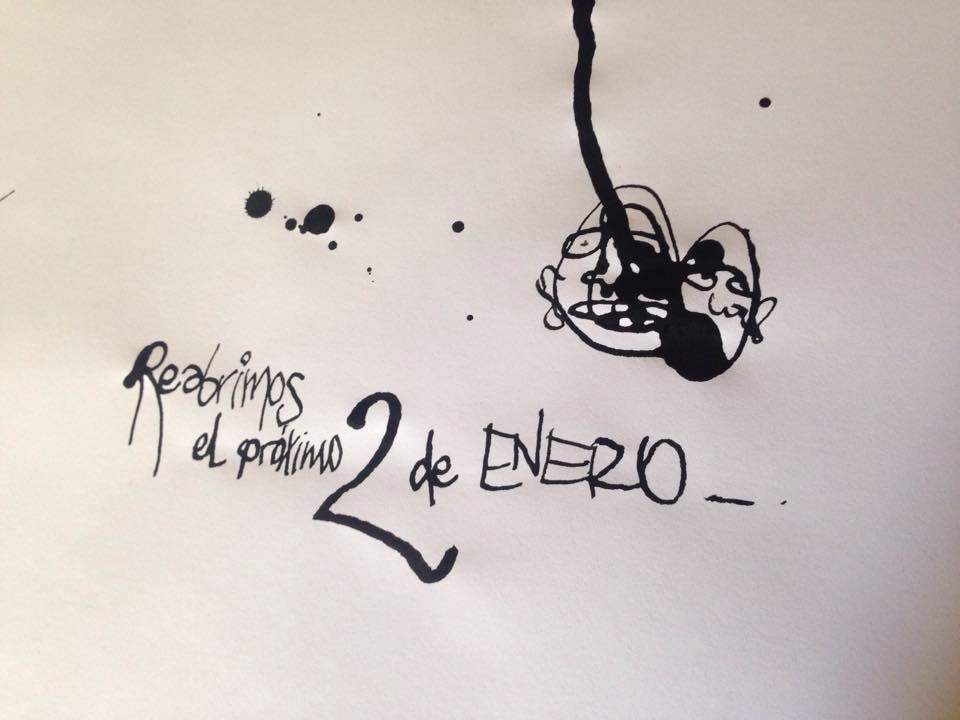 Reabrimos
el próximo 2 de ENERO